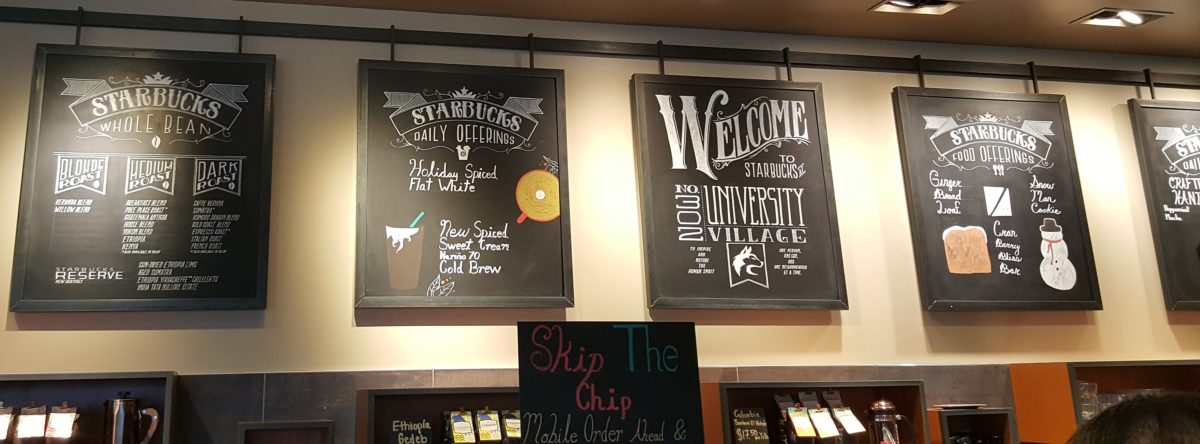 STARBUCKS
WHOLE BEAN
BLONDE
ROAST
MEDIUM
ROAST
DARK
ROAST
VERANDA BLEND
WILLOW BLEND
BREAKFAST BLEND
PIKE PLACE ROAST
GUATEMALA ANTIGUA
HOUSE BLEND
YUKON BLEND
ETHIOPIA
KENYA
CAFFE VERONA
SUMATRA
KOMODO DRAGON BLEND
GOLD COAST BLEND
ESPRESSO ROAST
ITALIAN ROAST
FRENCH ROAST
STARBUCKS
RESERVE
SUN-DRIED ETHIOPIA
AGED SUMATRA
STARBUCKS
DAILY OFFERINGS
Holiday Spiced
Flat White
New Spiced
Sweet Cream
Nariño 70
Cold Brew
WELCOME
TO
STARBUCKS
NO. 302
UNIVERSITY
VILLAGE
TO INSPIRE
AND
NURTURE
THE
HUMAN SPIRIT
ONE PERSON,
ONE CUP,
AND
ONE NEIGHBORHOOD
AT A TIME.
STARBUCKS
FOOD OFFERINGS
Ginger
Bread
Loaf
Snow
Man
Cookie
Cran
Berry
Bliss
Bar
Skip The
Chip
Mobile Order Ahead &
Ethiopia
Gedeb
Colombia